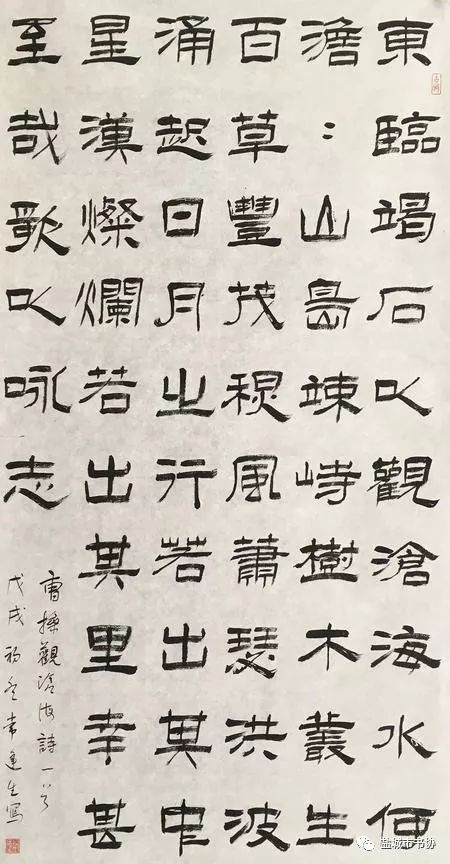 東臨竭石以觀滄海水何
澹〻山島竦峙樹木叢生
百草豐茂秋風蕭瑟洪波
涌起日月之行若出其中
星漢燦爛若出其里幸甚
至哉歌以咏志
曹操觀滄海詩一首
戊戌初冬常生寫
盐城市书协